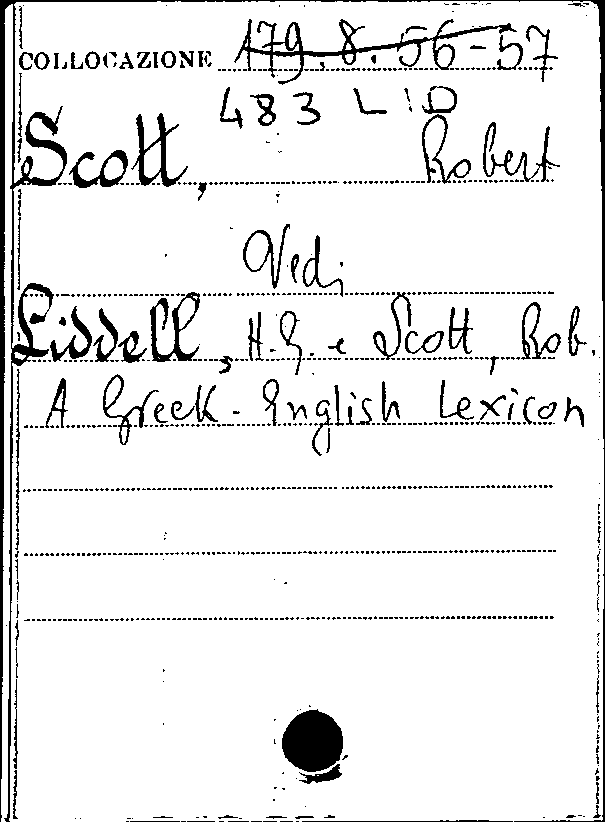 COLLOCAZIONE 179.8.56-57
483 LID
Scott, Robert
Vedi
Liddell, H.G. e Scott, Rob.
A Greek-English Lexicon